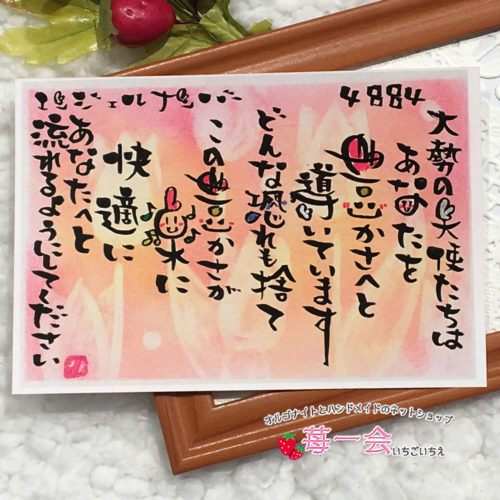 エンジェルナンバー 4884
大勢の天使たちは
あなたを
豊かさへと
導いています
どんな恐れも捨て
この豊かさが
永久に
快適に
あなたへと
流れるようにしてください
オルゴナイトとハンドメイドのネットショップ
苺一会 いちごいちえ